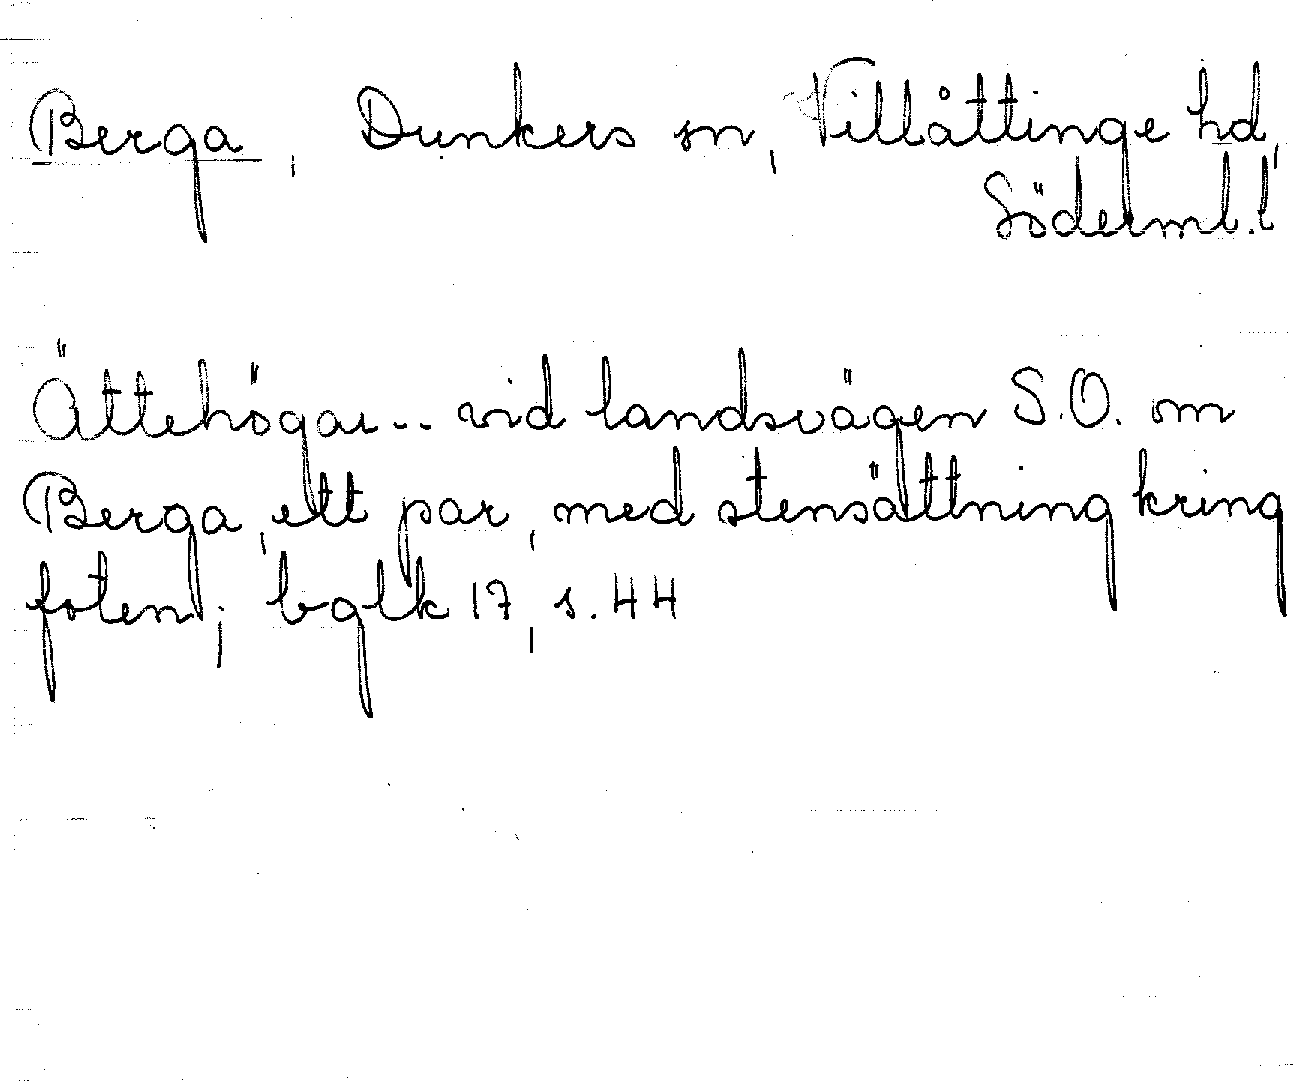 Berga, Dunkers sn, Villåttinge hd,
Söderml. l
Ättehögar.. vid landsvägen S.O. om
Berga, ett par, med stensättning kring
foten; bglk 17, s. 44